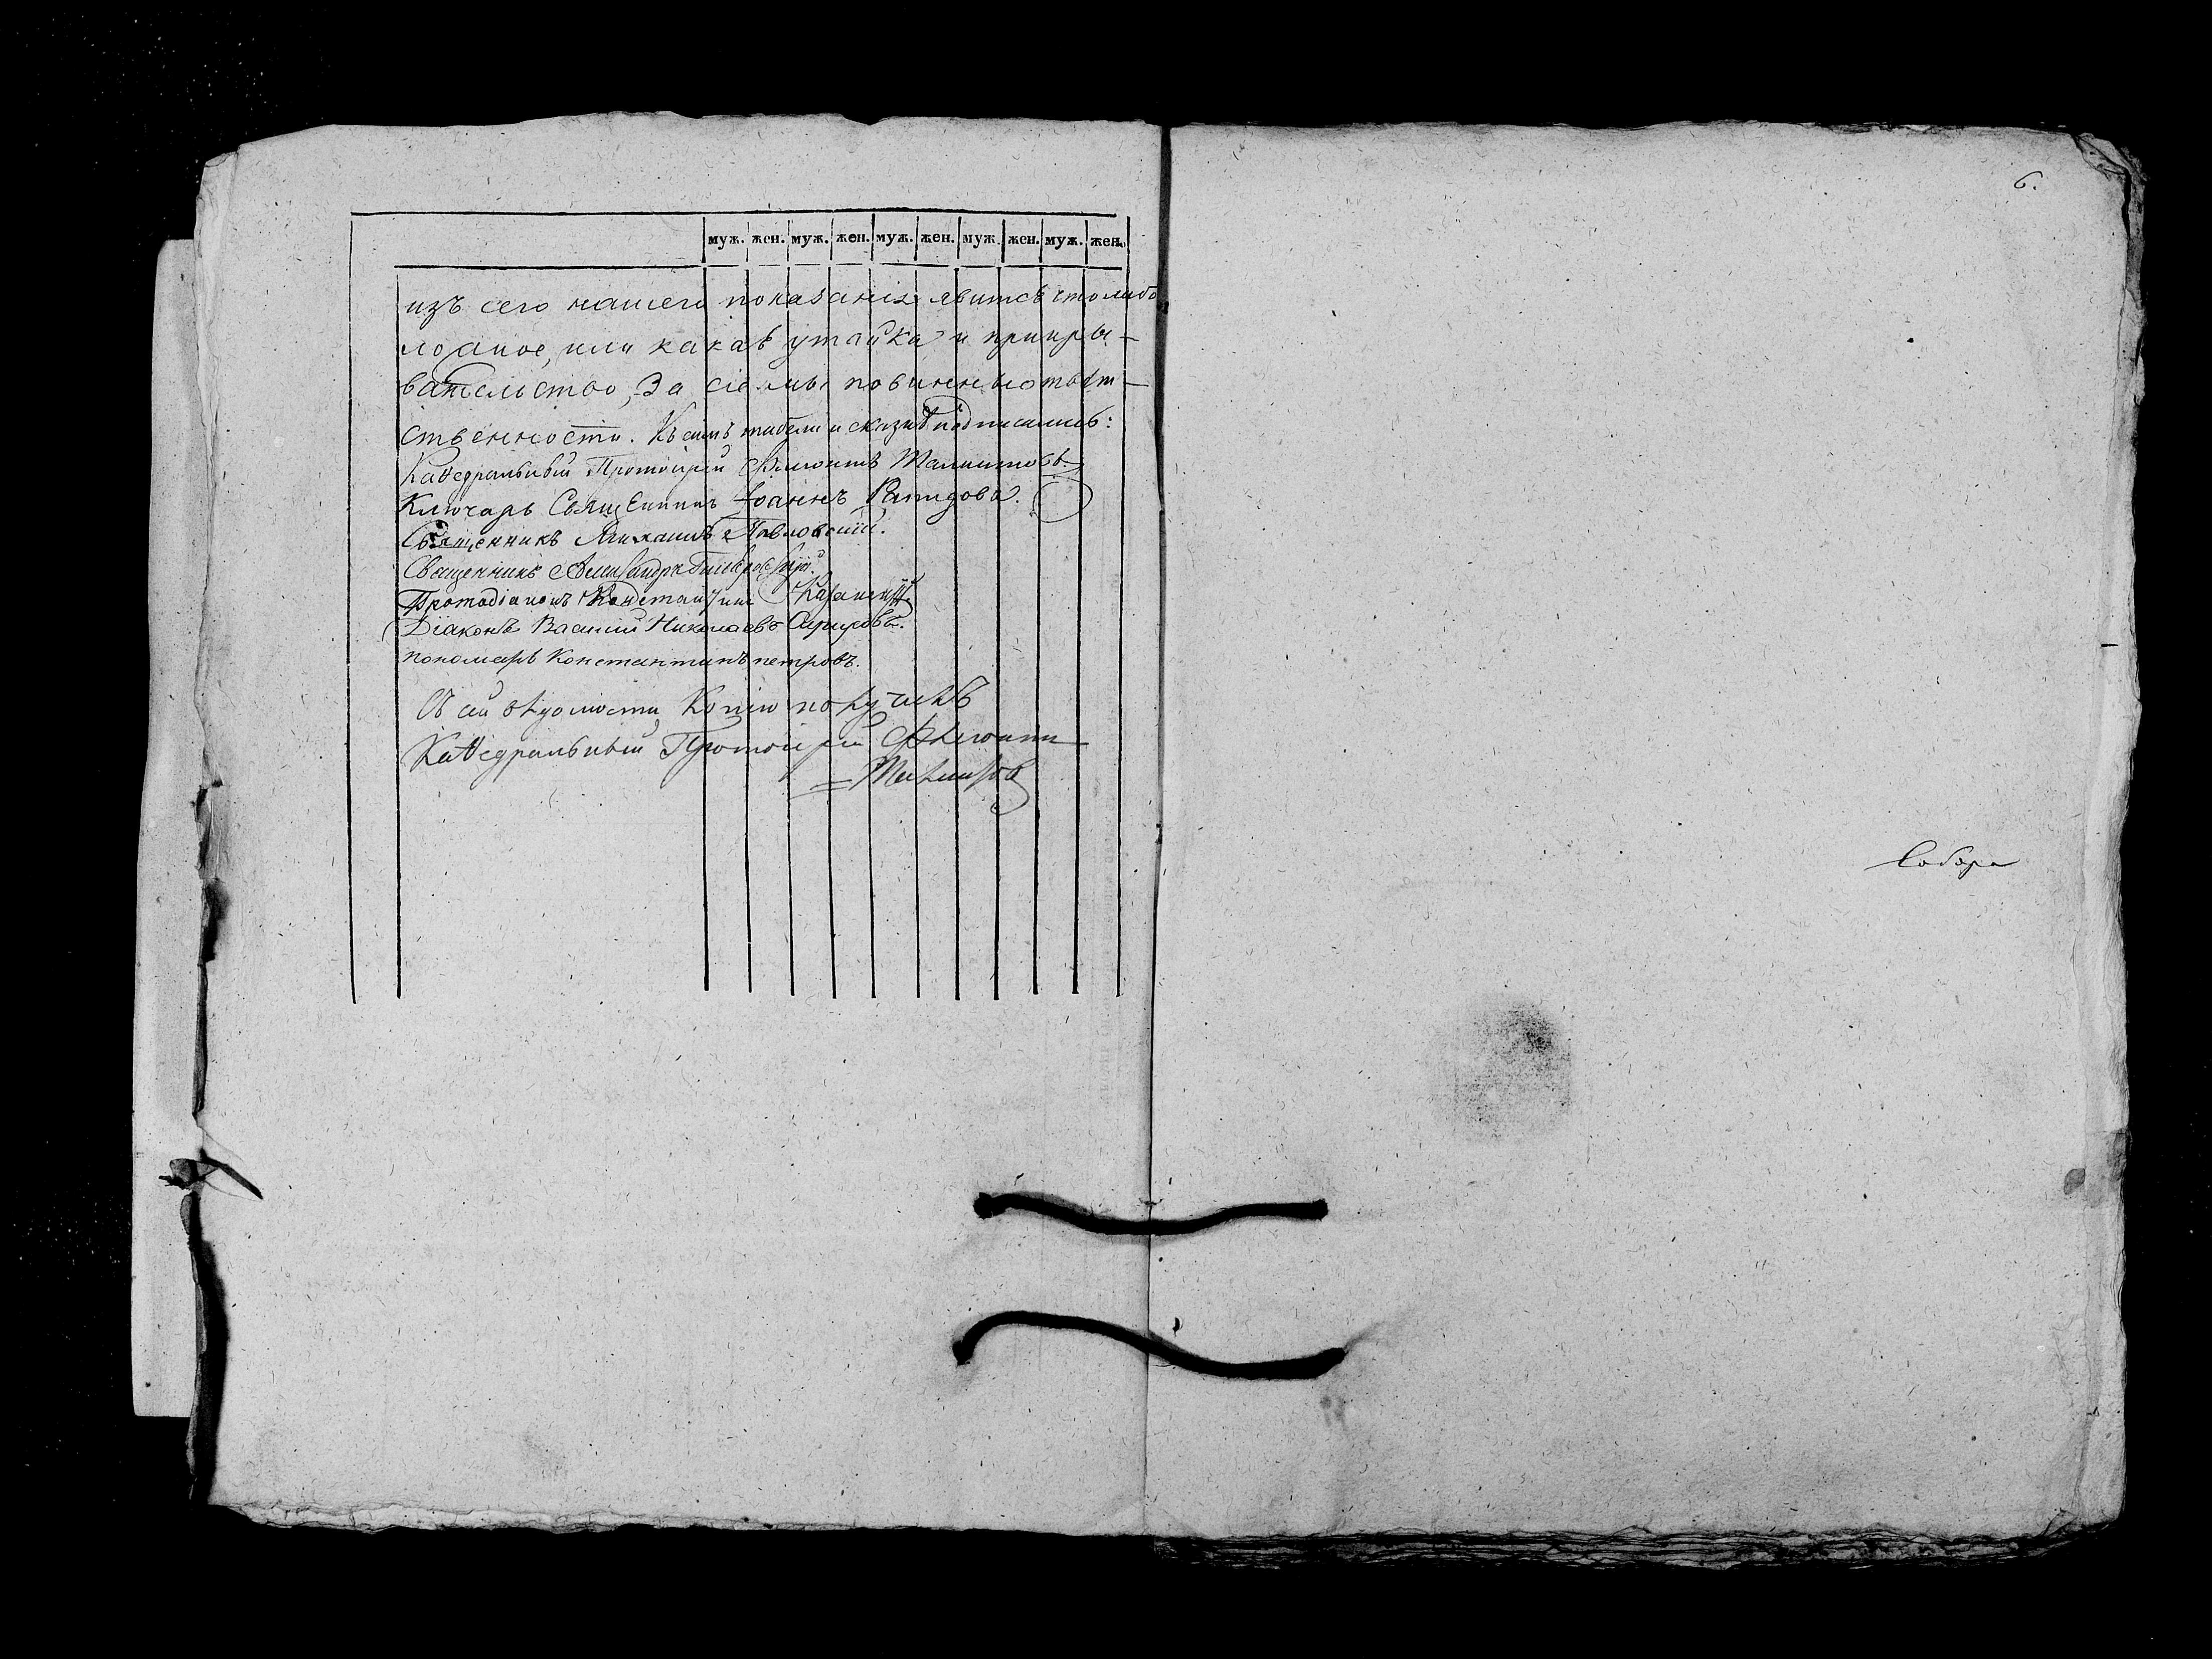 муж. жен. муж. жен. муж. жен. муж. жен. муж. жен.
изъ сего нашего показанія явится что либо
ложное, или какая утайка и прикры-
вательство, За сіе мы повинны отвѣт-
ственности. Къ симъ табели и сказкѣ подписались:
Каѳедральный Протоіерей
Ключарь Священникъ Іоаннъ
Священникъ Михаилъ Павловскій.
Священникъ Александръ
Протодіаконъ Константинъ Казанскій
Діаконъ Василій Николаевъ
пономарь Константинъ петровъ.
Съ сей вѣдомости Копію получилъ
Каѳедральный Протоіерей
6.
Собора